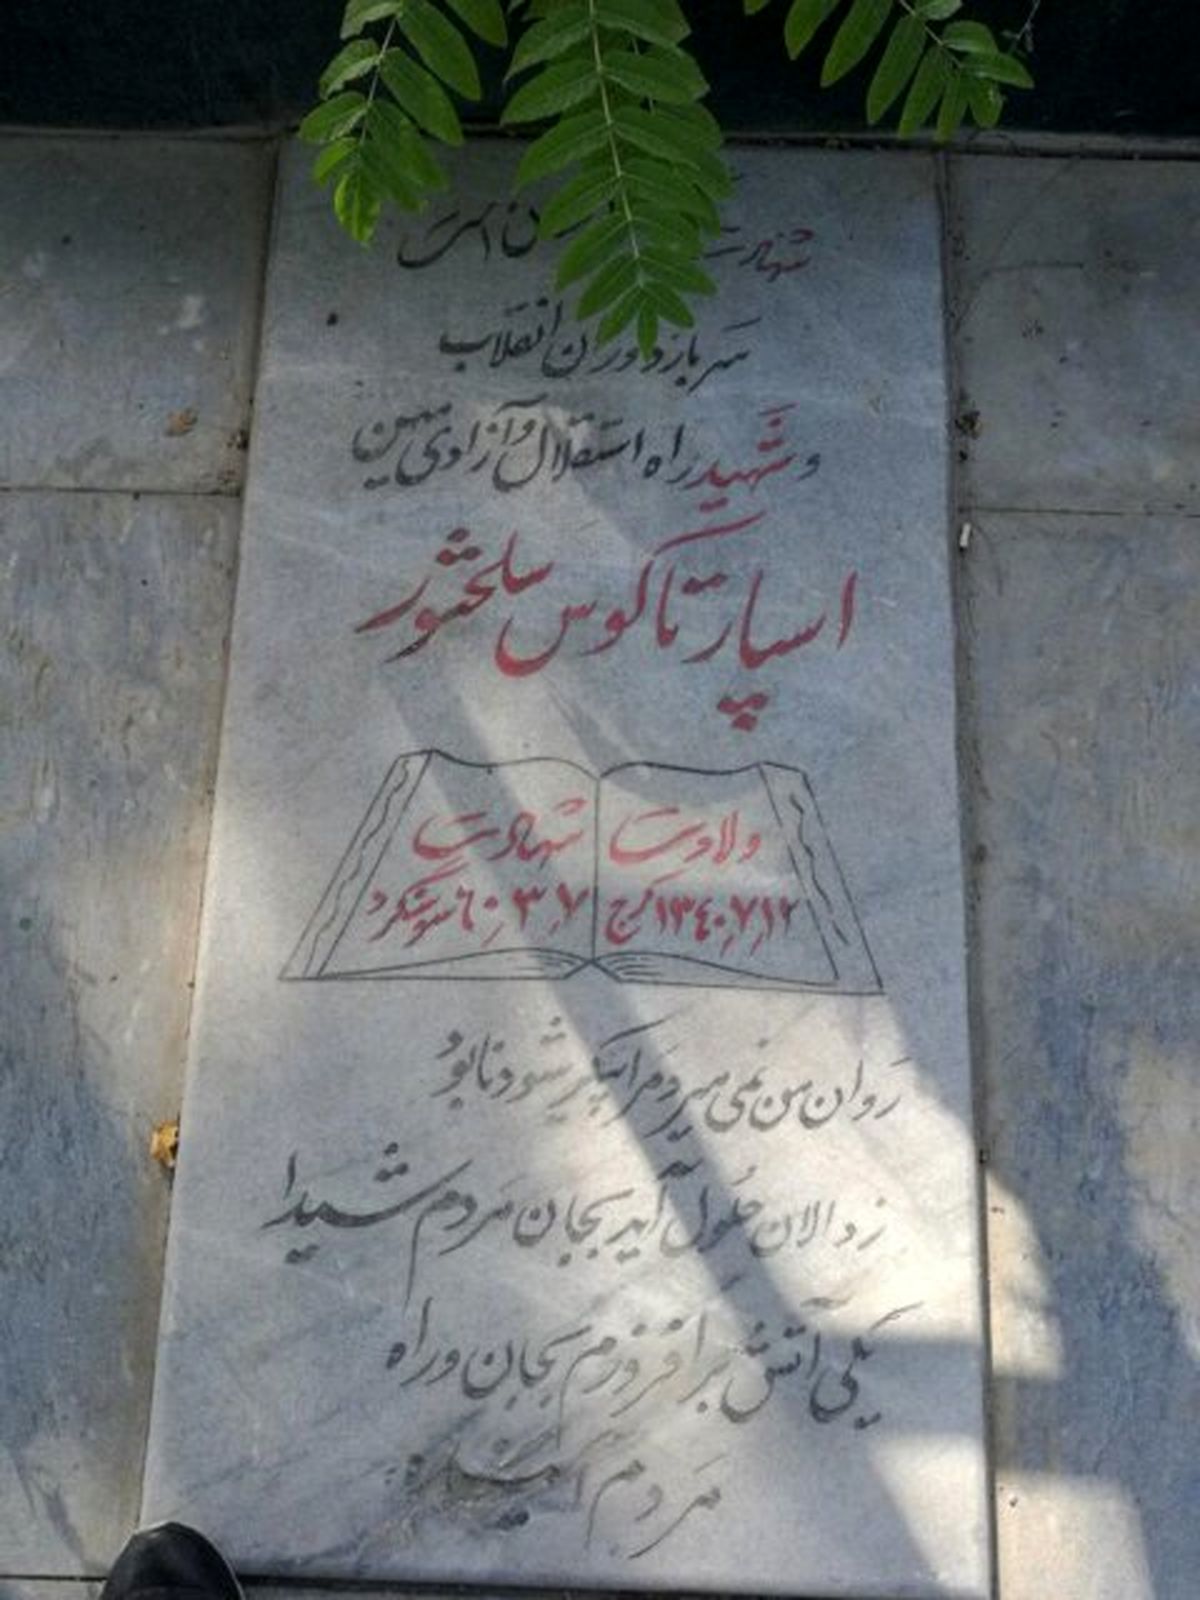 شهادت ن است
سرباز دوران انقلاب
و شهید راه استقلال و آزادی میهن
اسپارتاکوس سلحشور
ولادت
۱۳۴۰٫۷٫۱۲ کرج
شهادت
۶۰٫۳٫۷ سوسنگرد
روان من نمی میرد مرا پیکر شود نابود
زد الان حلول آید بجان مردم شیدا
یکی آتش برافروزم بجان و راه
مردم